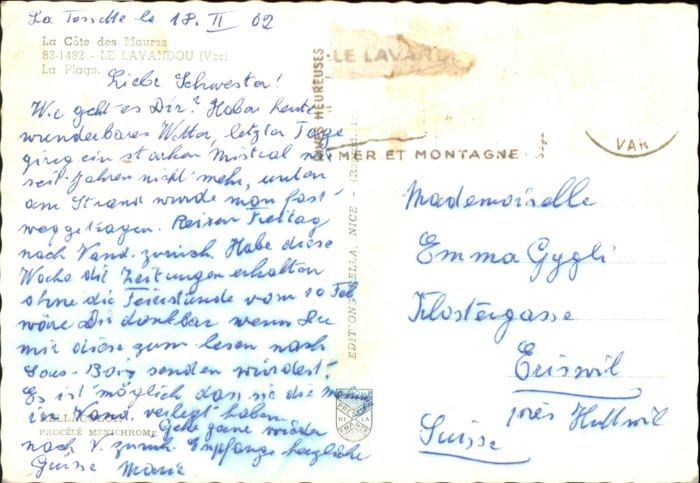 La Fossette le 18. II 62
La Côte des Maures
83-1482 - LE LAVANDOU (Var)
La Plage.
Liebe Schwester!
Wie geht es Dir? Haben heute
wunderbares Wetter, letzter Tage
ging ein starken Mistral wie
seit Jahren nicht mehr, unten
am Strand wurde man fast
weggetragen. Reisen Freitag
nach Vand. zurück. Habe diese
Woche die Zeitungen erhalten
ohne die Feierstunde vom 10 Feb
wäre Dir dankbar wenn Du
mir diese zum lesen nach
Sous-Bois senden würdest!
Es ist möglich dass sie die
in Vand. verlegt haben.
Gehe gerne wieder
nach V. zurück. Empfange herzliche
Grüsse Marie
PROCÉDÉ MIXICHROME
LE LAVANDOU
HEUREUSES
MER ET MONTAGNE
VAR
EDITIONS RELLA, NICE
Mademoiselle
Emma Gygli
Klostergasse
Eriswil
près Huttwil
Suisse